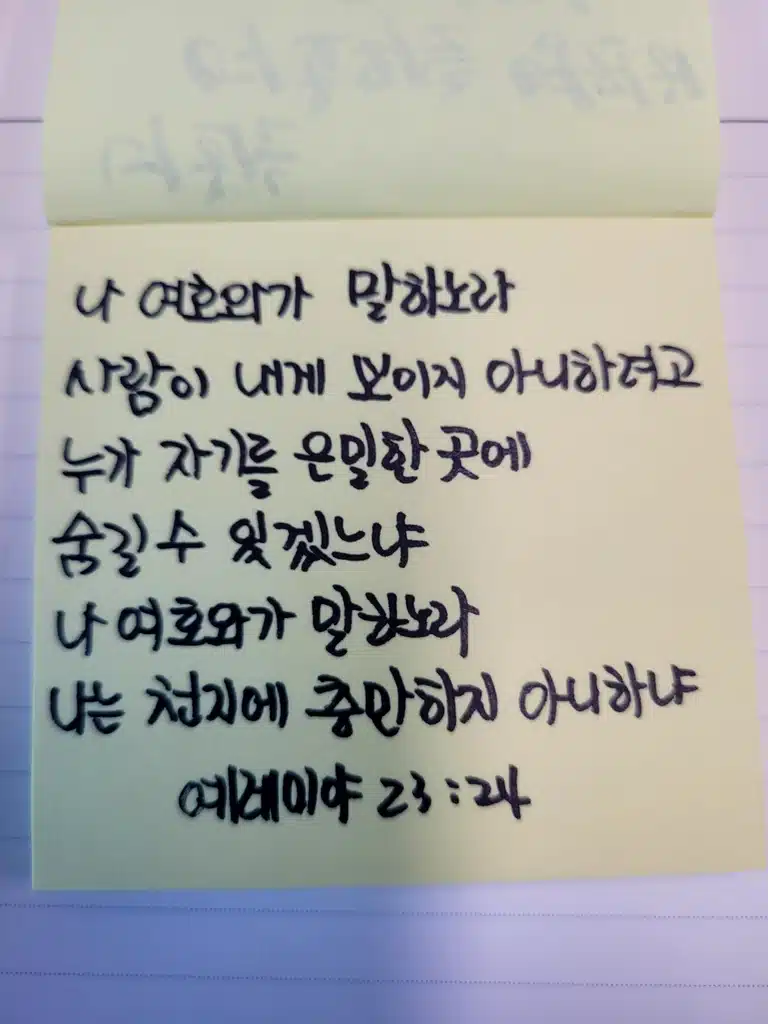 나 여호와가 말하노라
사람이 내게 보이지 아니하려고
누가 자기를 은밀한 곳에
숨길 수 있겠느냐
나 여호와가 말하노라
나는 천지에 충만하지 아니하냐
예레미야 23:24